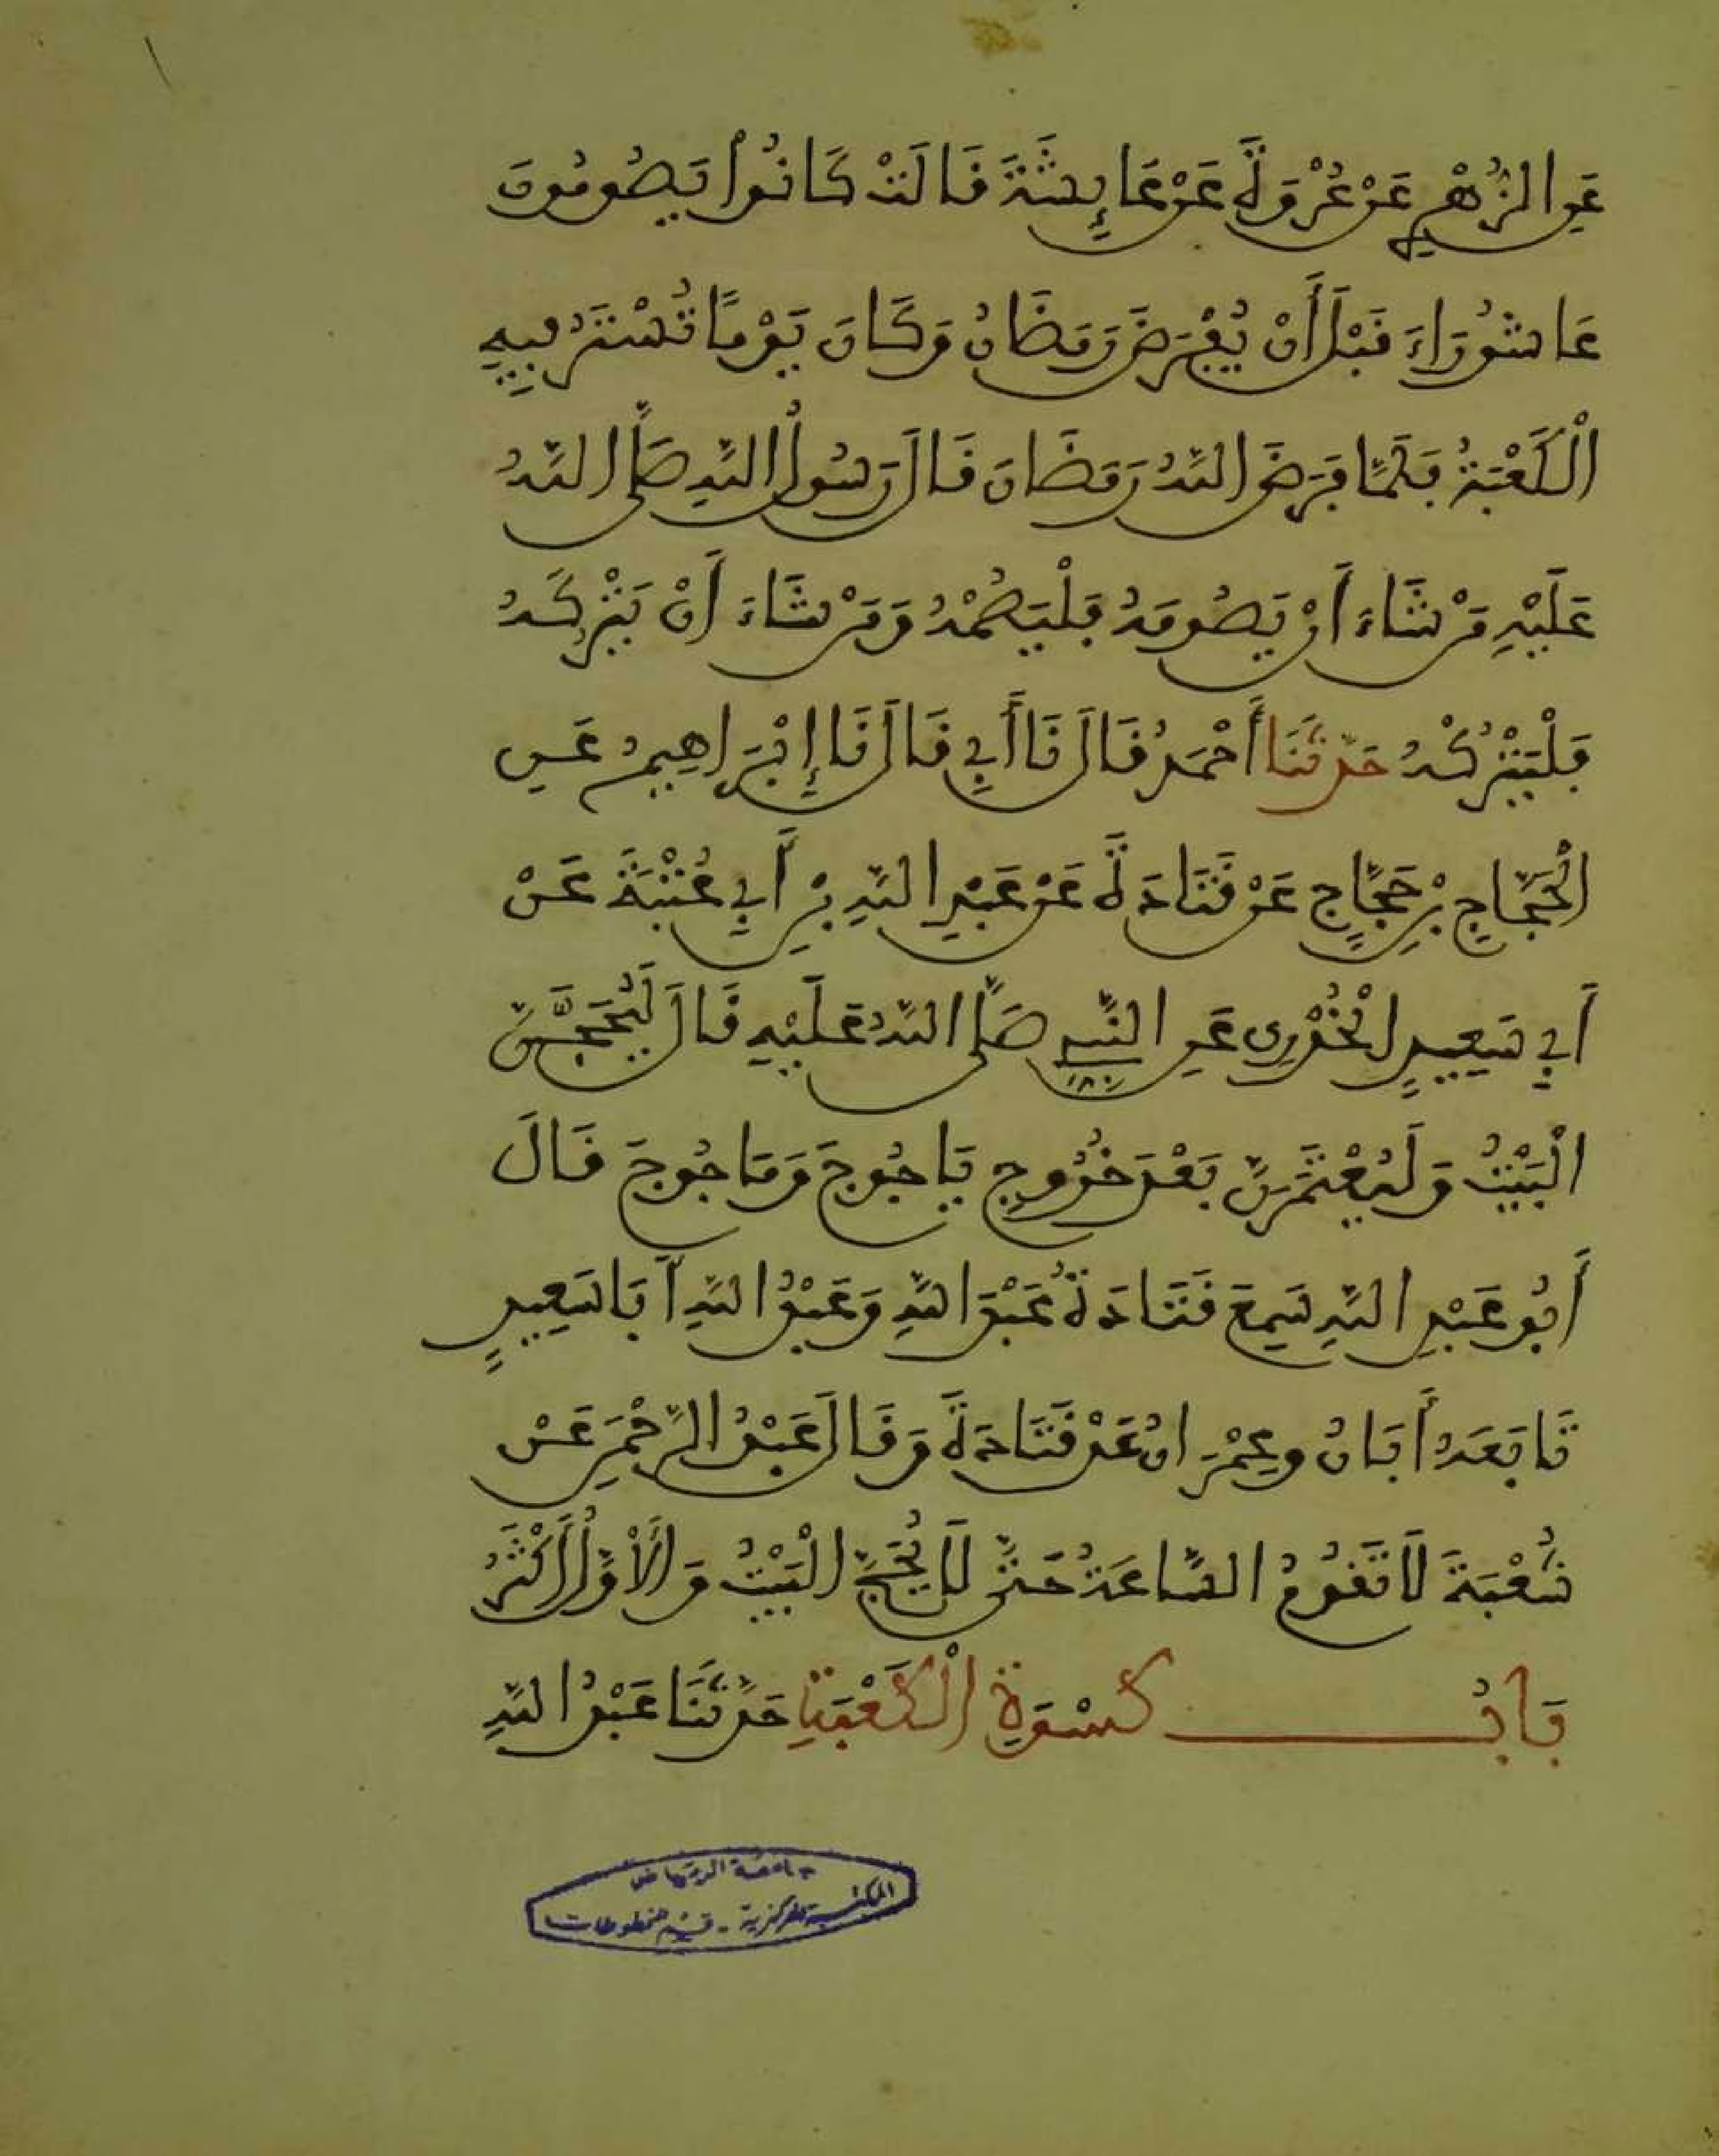 عَنِ الزُّهْرِيِّ عَنْ عُرْوَةَ عَنْ عَائِشَةَ قَالَتْ كَانُوا يَصُومُونَ
عَاشُورَاءَ قَبْلَ أَنْ يُفْرَضَ رَمَضَانُ وَكَانَ يَوْمًا تُسْتَرُ فِيهِ
الْكَعْبَةُ فَلَمَّا فَرَضَ اللَّهُ رَمَضَانَ قَالَ رَسُولُ اللَّهِ صَلَّى اللَّهُ
عَلَيْهِ مَنْ شَاءَ أَنْ يَصُومَهُ فَلْيَصُمْهُ وَمَنْ شَاءَ أَنْ يَتْرُكَهُ
فَلْيَتْرُكْهُ حَدَّثَنَا أَحْمَدُ قَالَ نَا أَبِي قَالَ نَا إِبْرَاهِيمُ عَنِ
الْحَجَّاجِ بْنِ حَجَّاجٍ عَنْ قَتَادَةَ عَنْ عَبْدِ اللَّهِ بْنِ أَبِي عُتْبَةَ عَنْ
أَبِي سَعِيدٍ الْخُدْرِيِّ عَنِ النَّبِيِّ صَلَّى اللَّهُ عَلَيْهِ قَالَ لَيُحَجَّنَّ
الْبَيْتُ وَلَيُعْتَمَرَنَّ بَعْدَ خُرُوجِ يَاجُوجَ وَمَاجُوجَ قَالَ
أَبُو عَبْدِ اللَّهِ سَمِعَ قَتَادَةُ عَبْدَ اللَّهِ وَعَبْدُ اللَّهِ أَبَا سَعِيدٍ
تَابَعَهُ أَبَانُ وعِمْرَانُ عَنْ قَتَادَةَ وَقَالَ عَبْدُ الرَّحْمَنِ عَنْ
شُعْبَةَ لَا تَقُومُ السَّاعَةُ حَتَّى لَا يُحَجَّ الْبَيْتُ وَالْأَوَّلُ أَكْثَرُ
بَابُ كِسْوَةِ الْكَعْبَةِ حَدَّثَنَا عَبْدُ اللَّهِ
جامعة الرياض
المكتبة المركزية - قسم المخطوطات